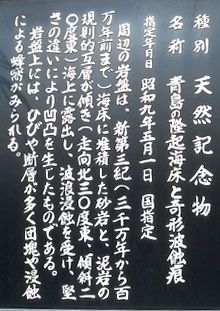 種別 天然記念物
名称 青島の隆起海床と奇形波蝕痕
指定年月日 昭和九年五月一日 国指定
周辺の岩盤は、新第三紀(三千万年から百
万年前まで)海床に堆積した砂岩と、泥岩の
規則的互層が傾き(走向北三〇度東、傾斜二
〇度東)海上に露出し、波浪浸蝕を受け、堅
さの違いにより凹凸を生じたものである。
岩盤上には、ひびや断層が多く団塊や浸蝕
による蜂窩がみられる。